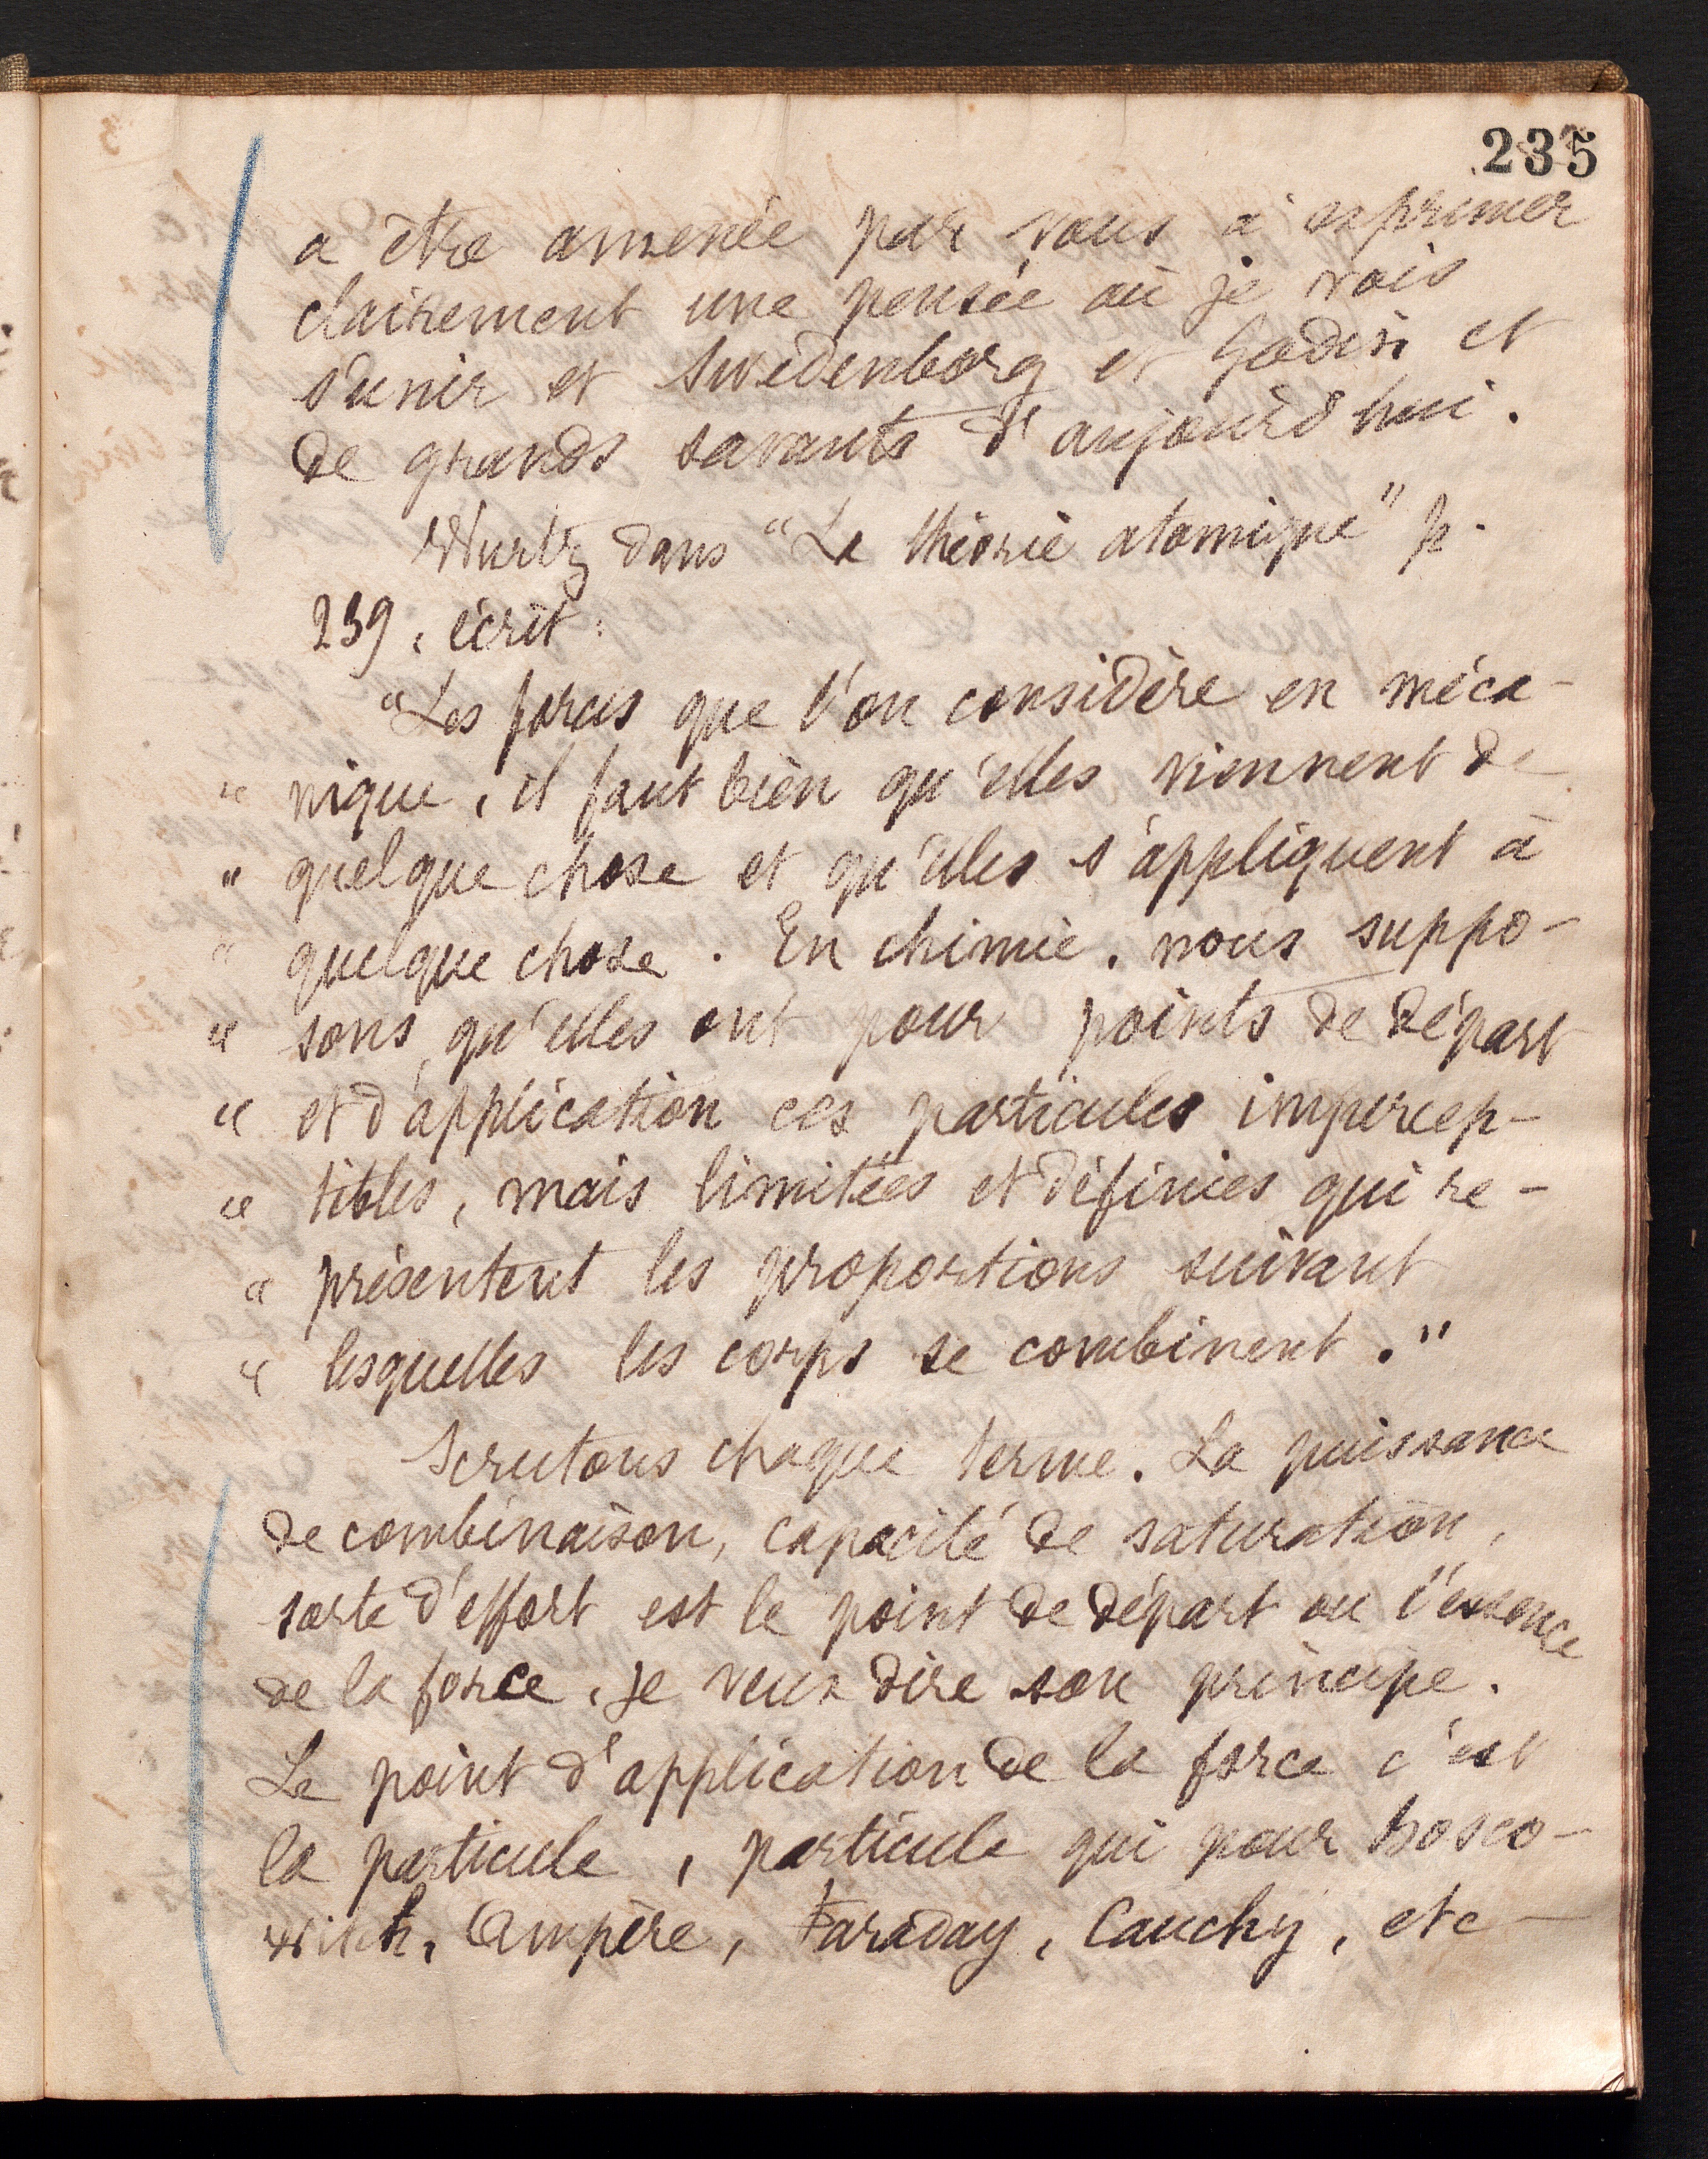 235
a être amenée par vous à exprimer
clairement une pensée où je vois
s'unir et Swedenborg et Godin et
de grands savants d'aujourd'hui.
Wurtz dans "La théorie atomique" p.
239, écrit:
"Les forces que l'on considère en méca-
" nique, il faut bien qu'elles viennent de
" quelque chose et qu'elles s'appliquent à
" quelque chose. En chimie, nous suppo-
" sons qu'elles ont pour points de départ
" et d'application ces particules impercep-
" tibles, mais limitées et définies qui re-
" présentent les proportions suivant
" lesquelles les corps se combinent."
Scrutons chaque terme. La puissance
de combinaison, capacité de saturation,
sorte d'effort est le point de départ ou l'essence
de la force, je veux dire son principe.
Le point d'application de la force c'est
la particule, particule qui pour Bosco-
witch, Ampère, Faraday, Cauchy, etc